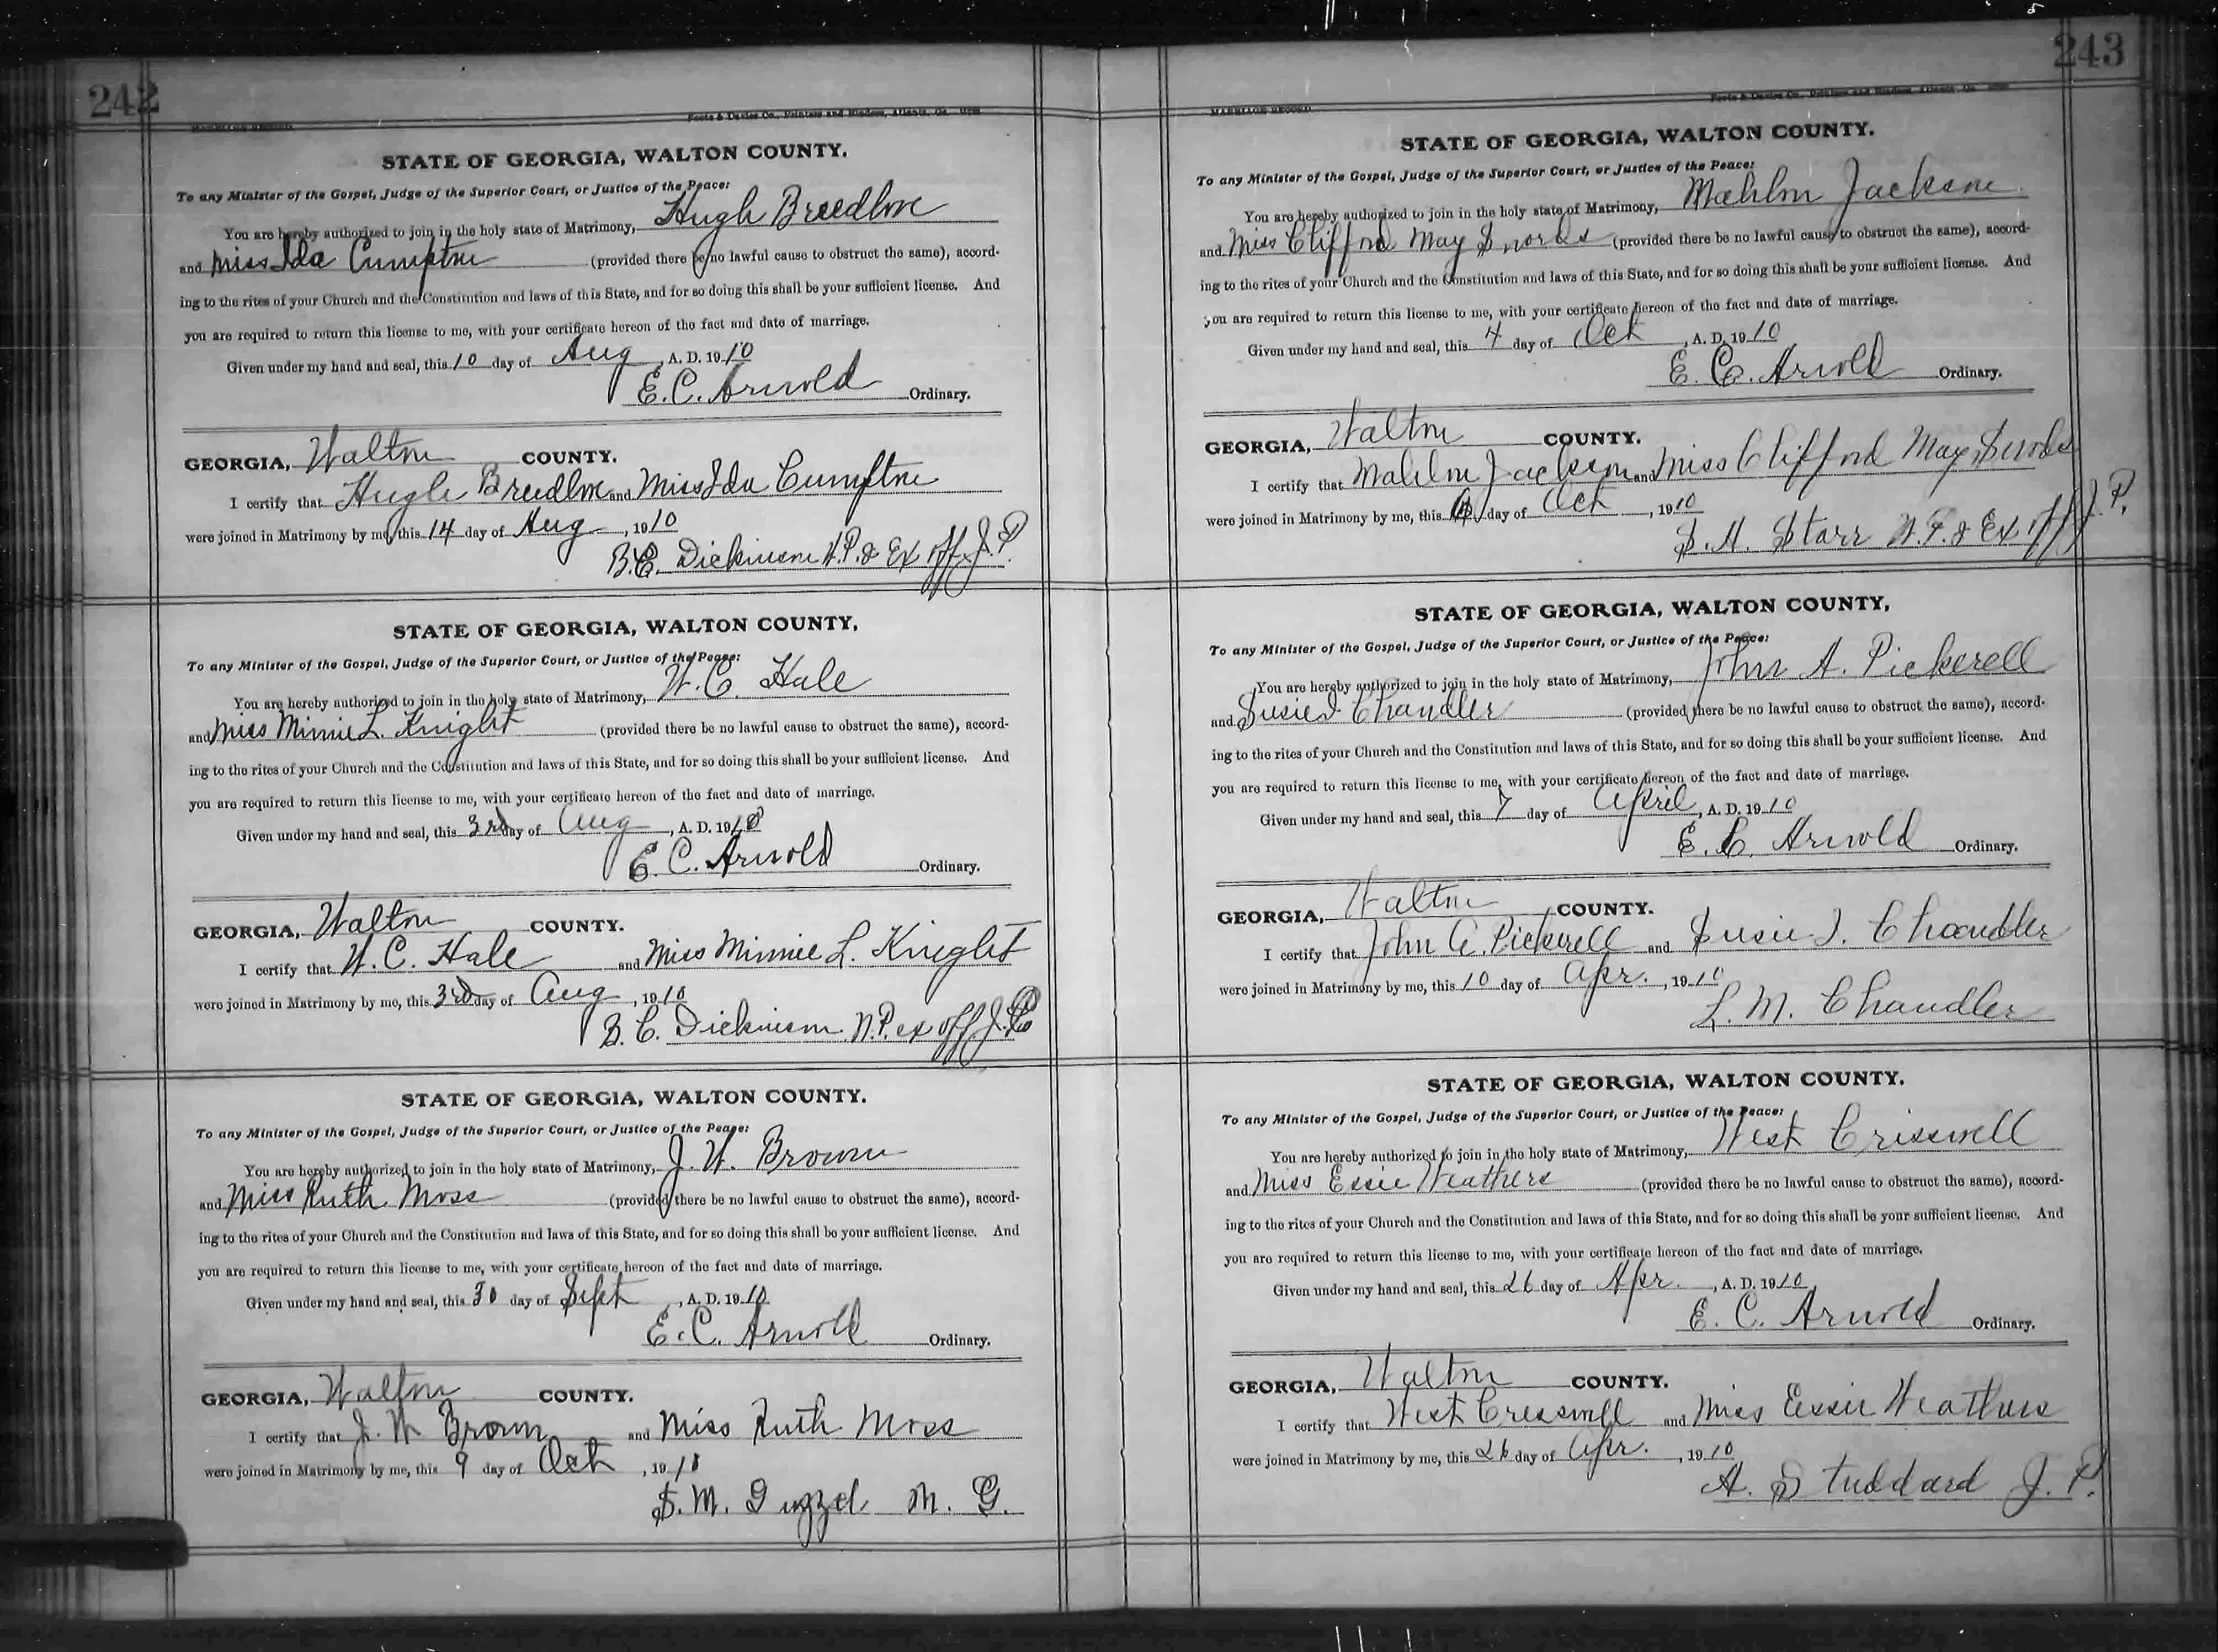 242
MARRIAGE RECORD
Foote & Davies Co., Printers and Binders, Atlanta, Ga.
STATE OF GEORGIA, WALTON COUNTY.
To any Minister of the Gospel, Judge of the Superior Court, or Justice of the Peace:
You are hereby authorized to join in the holy state of Matrimony, Hugh Breedlove
and Miss Ida Cumpton (provided there be no lawful cause to obstruct the same), accord-
ing to the rites of your Church and the Constitution and laws of this State, and for so doing this shall be your sufficient license. And
you are required to return this license to me, with your certificate hereon of the fact and date of marriage.
Given under my hand and seal, this 10 day of Aug, A. D. 1910
E. C. Arnold Ordinary.
GEORGIA, Walton COUNTY.
I certify that Hugh Breedlove and Miss Ida Cumpton
were joined in Matrimony by me, this 14 day of Aug, 1910
B. C. Dickinson N. P. & Ex off J. P.
STATE OF GEORGIA, WALTON COUNTY,
To any Minister of the Gospel, Judge of the Superior Court, or Justice of the Peace:
You are hereby authorized to join in the holy state of Matrimony, W. C. Hale
and Miss Minnie L. Knight (provided there be no lawful cause to obstruct the same), accord-
ing to the rites of your Church and the Constitution and laws of this State, and for so doing this shall be your sufficient license. And
you are required to return this license to me, with your certificate hereon of the fact and date of marriage.
Given under my hand and seal, this 3rd day of Aug, A. D. 1910
E. C. Arnold Ordinary.
GEORGIA, Walton COUNTY.
I certify that W. C. Hale and Miss Minnie L. Knight
were joined in Matrimony by me, this 3rd day of Aug, 1910
B. C. Dickinson N. P. ex off. J. P.
STATE OF GEORGIA, WALTON COUNTY.
To any Minister of the Gospel, Judge of the Superior Court, or Justice of the Peace:
You are hereby authorized to join in the holy state of Matrimony, J. W. Brown
and Miss Ruth Moss (provided there be no lawful cause to obstruct the same), accord-
ing to the rites of your Church and the Constitution and laws of this State, and for so doing this shall be your sufficient license. And
you are required to return this license to me, with your certificate hereon of the fact and date of marriage.
Given under my hand and seal, this 30 day of Sept, A. D. 1910
E. C. Arnold Ordinary.
GEORGIA, Walton COUNTY.
I certify that J. W. Brown and Miss Ruth Moss
were joined in Matrimony by me, this 9 day of Oct, 1910
S. M. M. G.
243
MARRIAGE RECORD
Foote & Davies Co., Printers and Binders, Atlanta, Ga.
STATE OF GEORGIA, WALTON COUNTY.
To any Minister of the Gospel, Judge of the Superior Court, or Justice of the Peace:
You are hereby authorized to join in the holy state of Matrimony, Mahlon Jackson
and Miss Clifford May (provided there be no lawful cause to obstruct the same), accord-
ing to the rites of your Church and the Constitution and laws of this State, and for so doing this shall be your sufficient license. And
you are required to return this license to me, with your certificate hereon of the fact and date of marriage.
Given under my hand and seal, this 4 day of Oct, A. D. 1910
E. C. Arnold Ordinary.
GEORGIA, Walton COUNTY.
I certify that Mahlon Jackson and Miss Clifford May
were joined in Matrimony by me, this day of Oct, 1910
S. A. Starr N. P. & Ex off J. P.
STATE OF GEORGIA, WALTON COUNTY,
To any Minister of the Gospel, Judge of the Superior Court, or Justice of the Peace:
You are hereby authorized to join in the holy state of Matrimony, John A. Pickerell
and Susie I. Chandler (provided there be no lawful cause to obstruct the same), accord-
ing to the rites of your Church and the Constitution and laws of this State, and for so doing this shall be your sufficient license. And
you are required to return this license to me, with your certificate hereon of the fact and date of marriage.
Given under my hand and seal, this 7 day of April, A. D. 1910
E. C. Arnold Ordinary.
GEORGIA, Walton COUNTY.
I certify that John A. Pickerell and Susie I. Chandler
were joined in Matrimony by me, this 10 day of Apr., 1910
L. M. Chandler
STATE OF GEORGIA, WALTON COUNTY.
To any Minister of the Gospel, Judge of the Superior Court, or Justice of the Peace:
You are hereby authorized to join in the holy state of Matrimony, West Criswell
and Miss Essie Weathers (provided there be no lawful cause to obstruct the same), accord-
ing to the rites of your Church and the Constitution and laws of this State, and for so doing this shall be your sufficient license. And
you are required to return this license to me, with your certificate hereon of the fact and date of marriage.
Given under my hand and seal, this 26 day of Apr., A. D. 1910
E. C. Arnold Ordinary.
GEORGIA, Walton COUNTY.
I certify that West Creswell and Miss Essie Weathers
were joined in Matrimony by me, this 26 day of Apr., 1910
A. Studdard J. P.